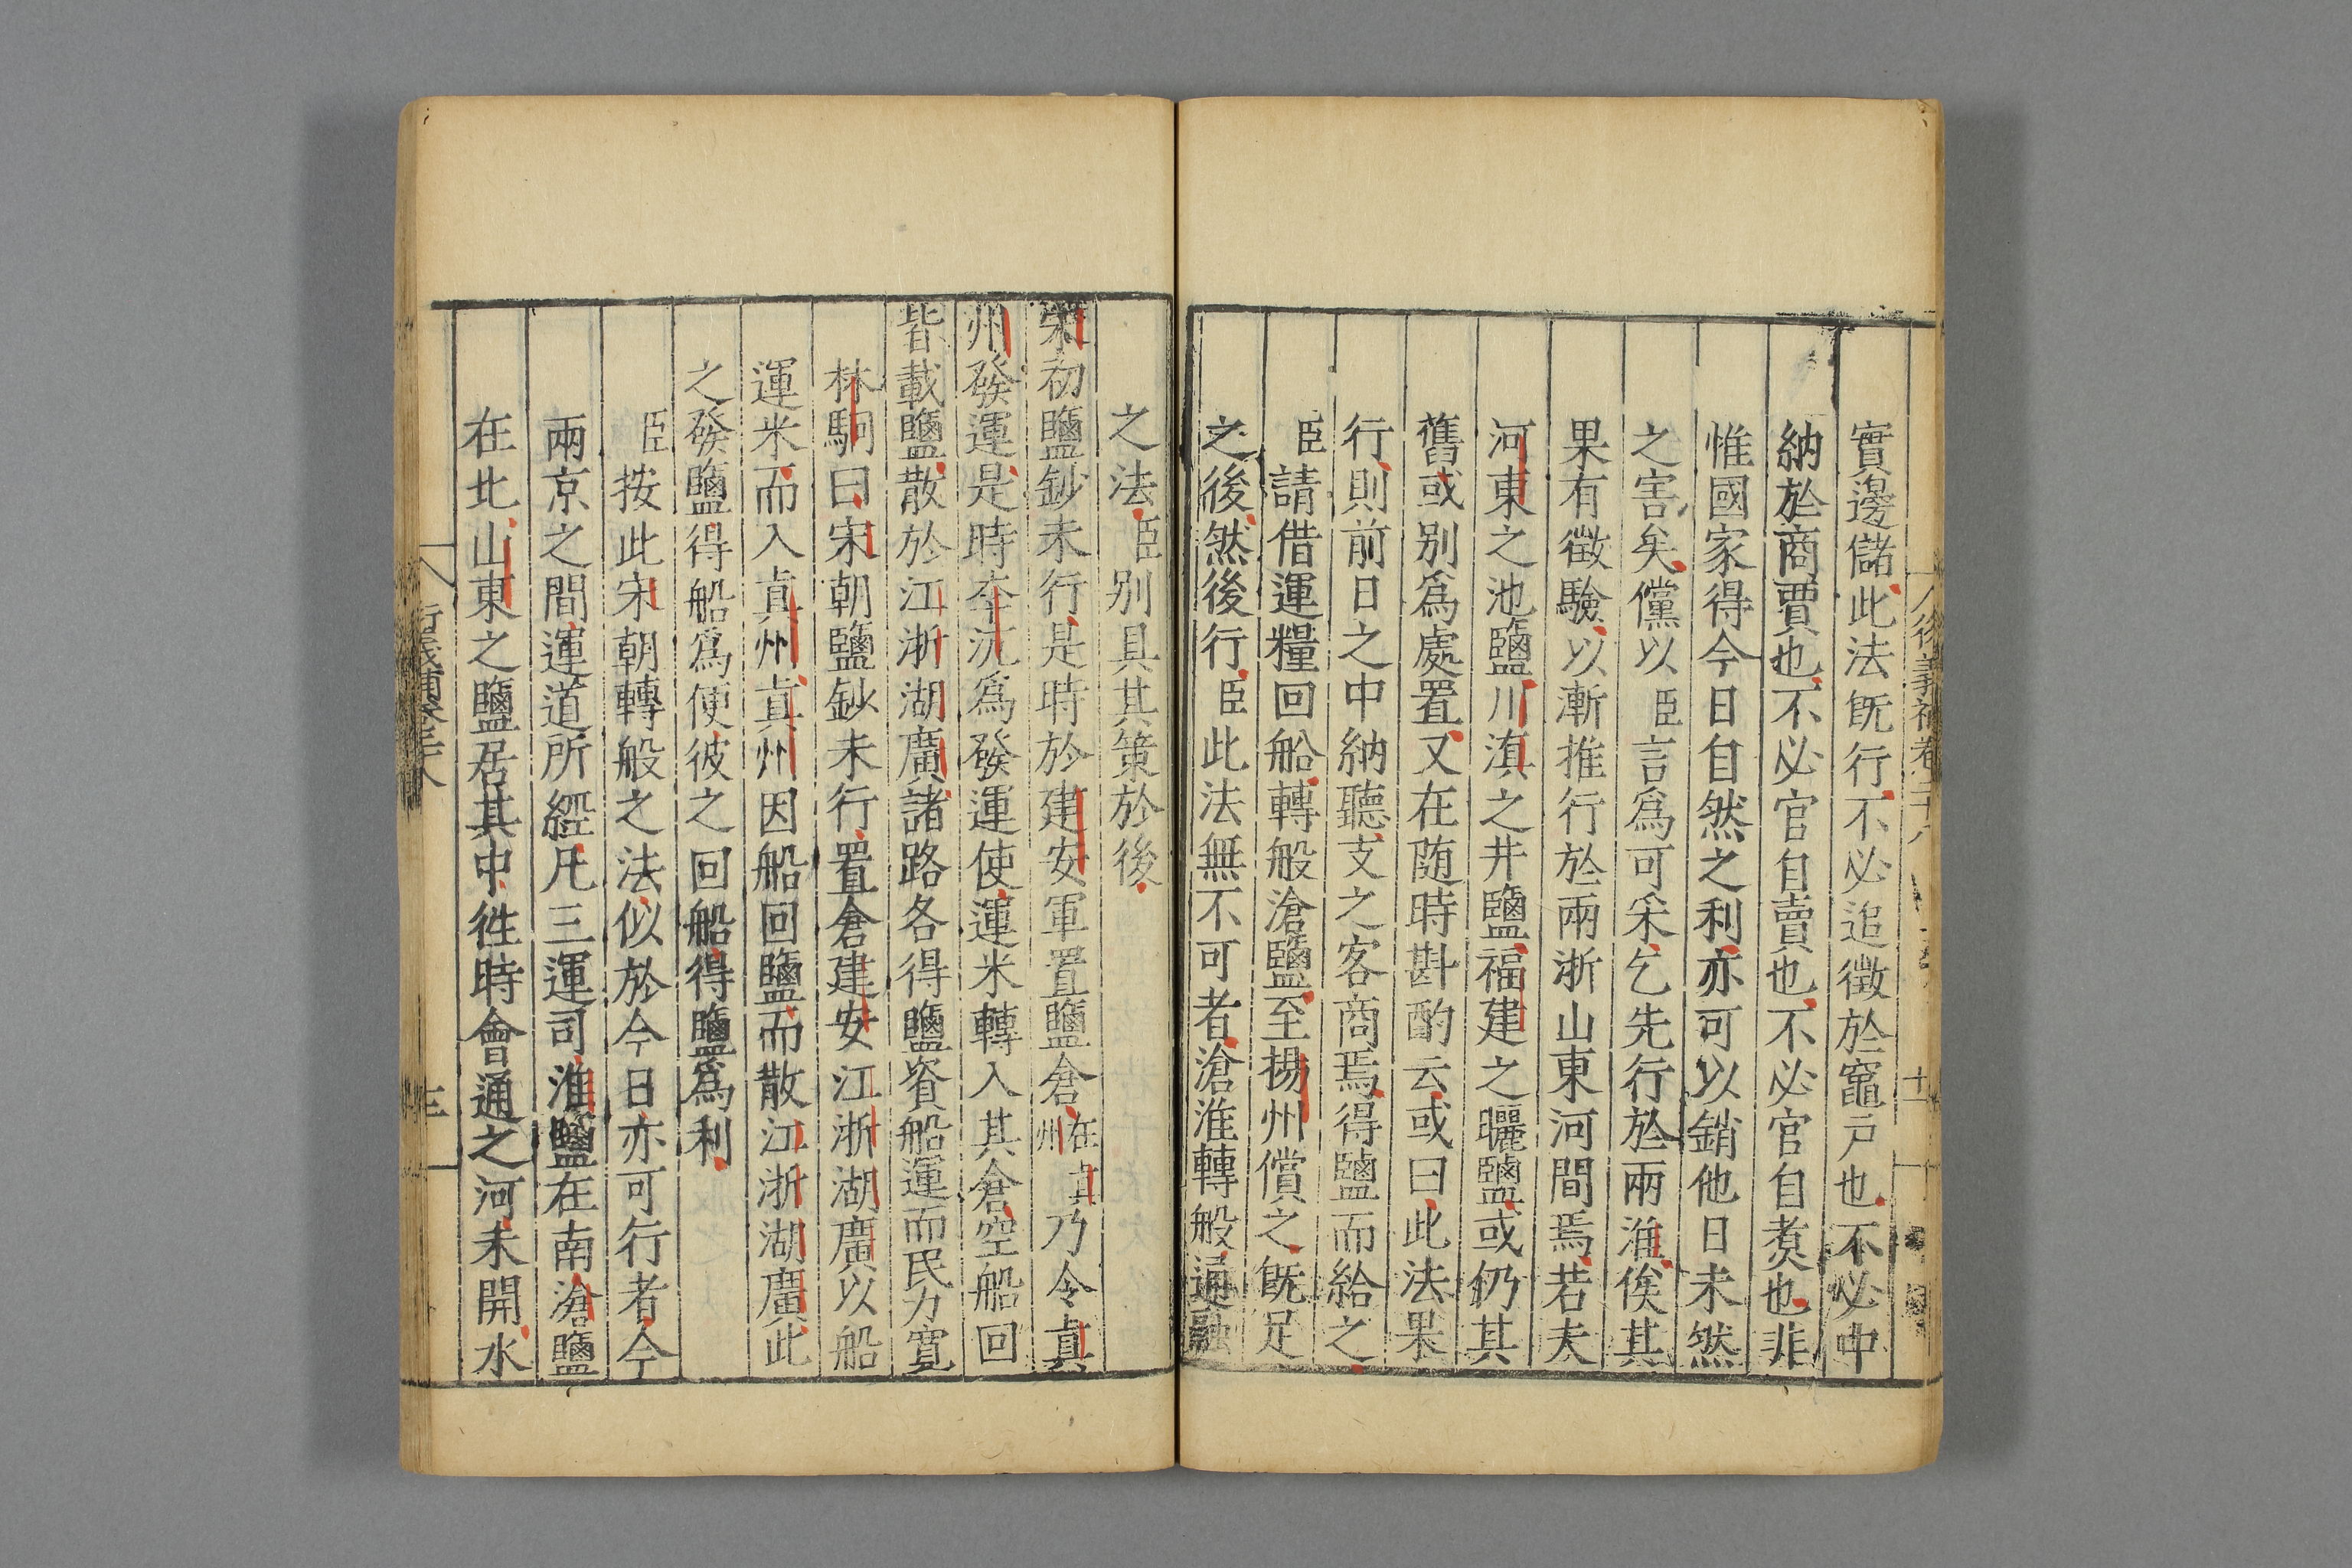 實邊儲此法旣行不必追徵於竈戸也不必中
納於商賈也不必官自賣也不必官自煑也非
惟國家得今日自然之利亦可以銷他日未然
之害矣儻以臣言爲可采乞先行於兩淮俟其
果有徵驗以漸推行於兩浙山東河間焉若夫
河東之池鹽川滇之井鹽福建之曬鹽或仍其
舊或别爲處置又在随時斟酌云或曰此法果
行則前日之中納聽支之客商焉得鹽而給之
臣請借運糧回船轉般滄鹽至揚州償之旣足
之後然後行臣此法無不可者滄淮轉般通融
之法臣别具其策於後
宋初鹽鈔未行是時於建安軍置鹽倉在真州乃令真
州發運是時李沆爲發運使運米轉入其倉空船回
皆載鹽散於江浙湖廣諸路各得鹽資船運而民力寛
林駉曰宋朝鹽鈔未行置倉建安江浙湖廣以船
運米而入真州真州因船回鹽而散江浙湖廣此
之發鹽得船爲便彼之回船得鹽爲利
臣按此宋朝轉般之法似於今日亦可行者今
兩京之間運道所經凡三運司淮鹽在南滄鹽
在北山東之鹽居其中徃時會通之河未開水